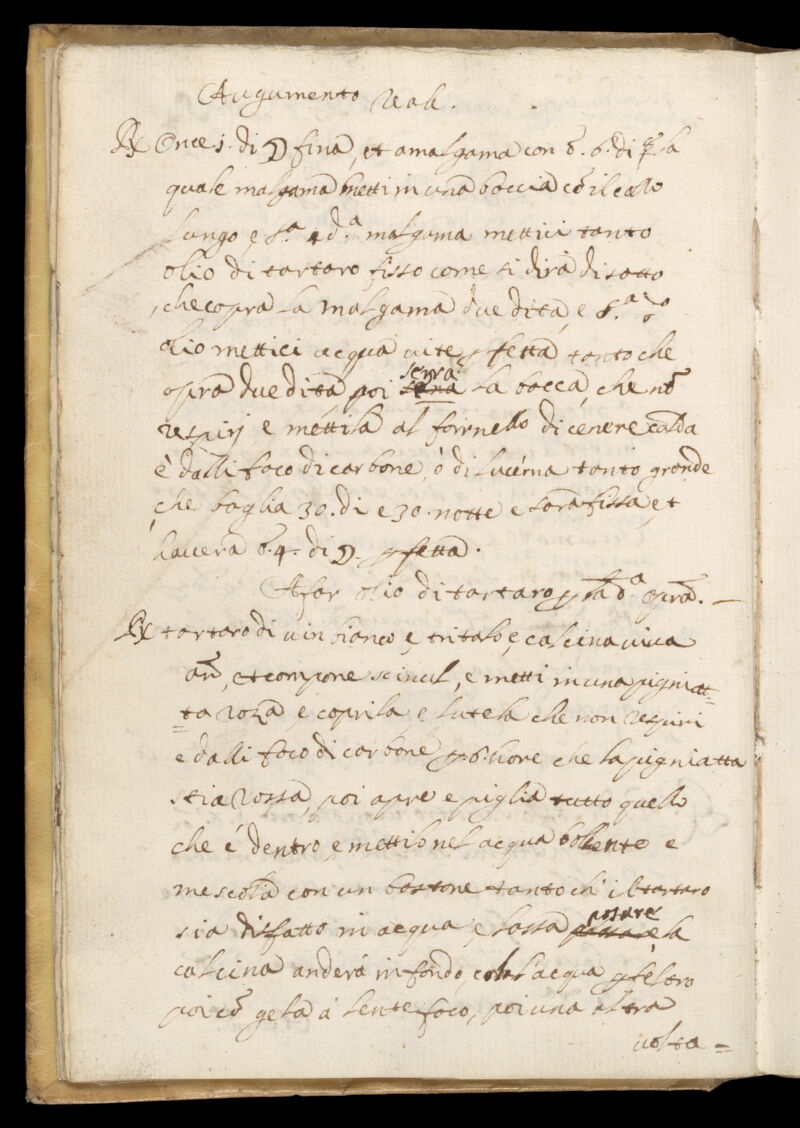 Augumento reale.
℞ Once 1. di ☽ fina, et amalgama con ℥. 6. di ☿. la
quale malgama metti in una boccia cō il collo
lungo e s.ª 4 d.ª malgama mettici tanto
olio di tartaro fisso come si dira di sotto
, che copra la malgama due dita, e s.ª d.º
olio mettici acqua vite pfetta tanto che
opra due dita poi serra la bocca, che nō
respirj e mettila al fornello di cenere calda
è dalli foco di carbone, ó di lucérna tanto grande
che boglia 30. di e 30. notte e sara fissa, et
havera ℥. 4. di ☽. pfetta.
A far olio di tartaro p la d.ª opra. —
℞ tartaro di vin bianco e, tritalo, e, calcina viva
añ, et compone, e metti in una pigniat=
=ta roza e coprila e lutela che non respiri
e dalli foco di carbone p. 6. hore che la pigniatta
stia rossa, poi apre e piglia tutto quello
che é dentro e, mettilo nel acqua bollente e
mescola con un bastone tanto ch' il tartaro
sia disfatto in acqua, e, lassa posare la
calcina anderá in fondo, cola l'acqua p feltro
poi cō gela á lente foco, poi una altra
volta =